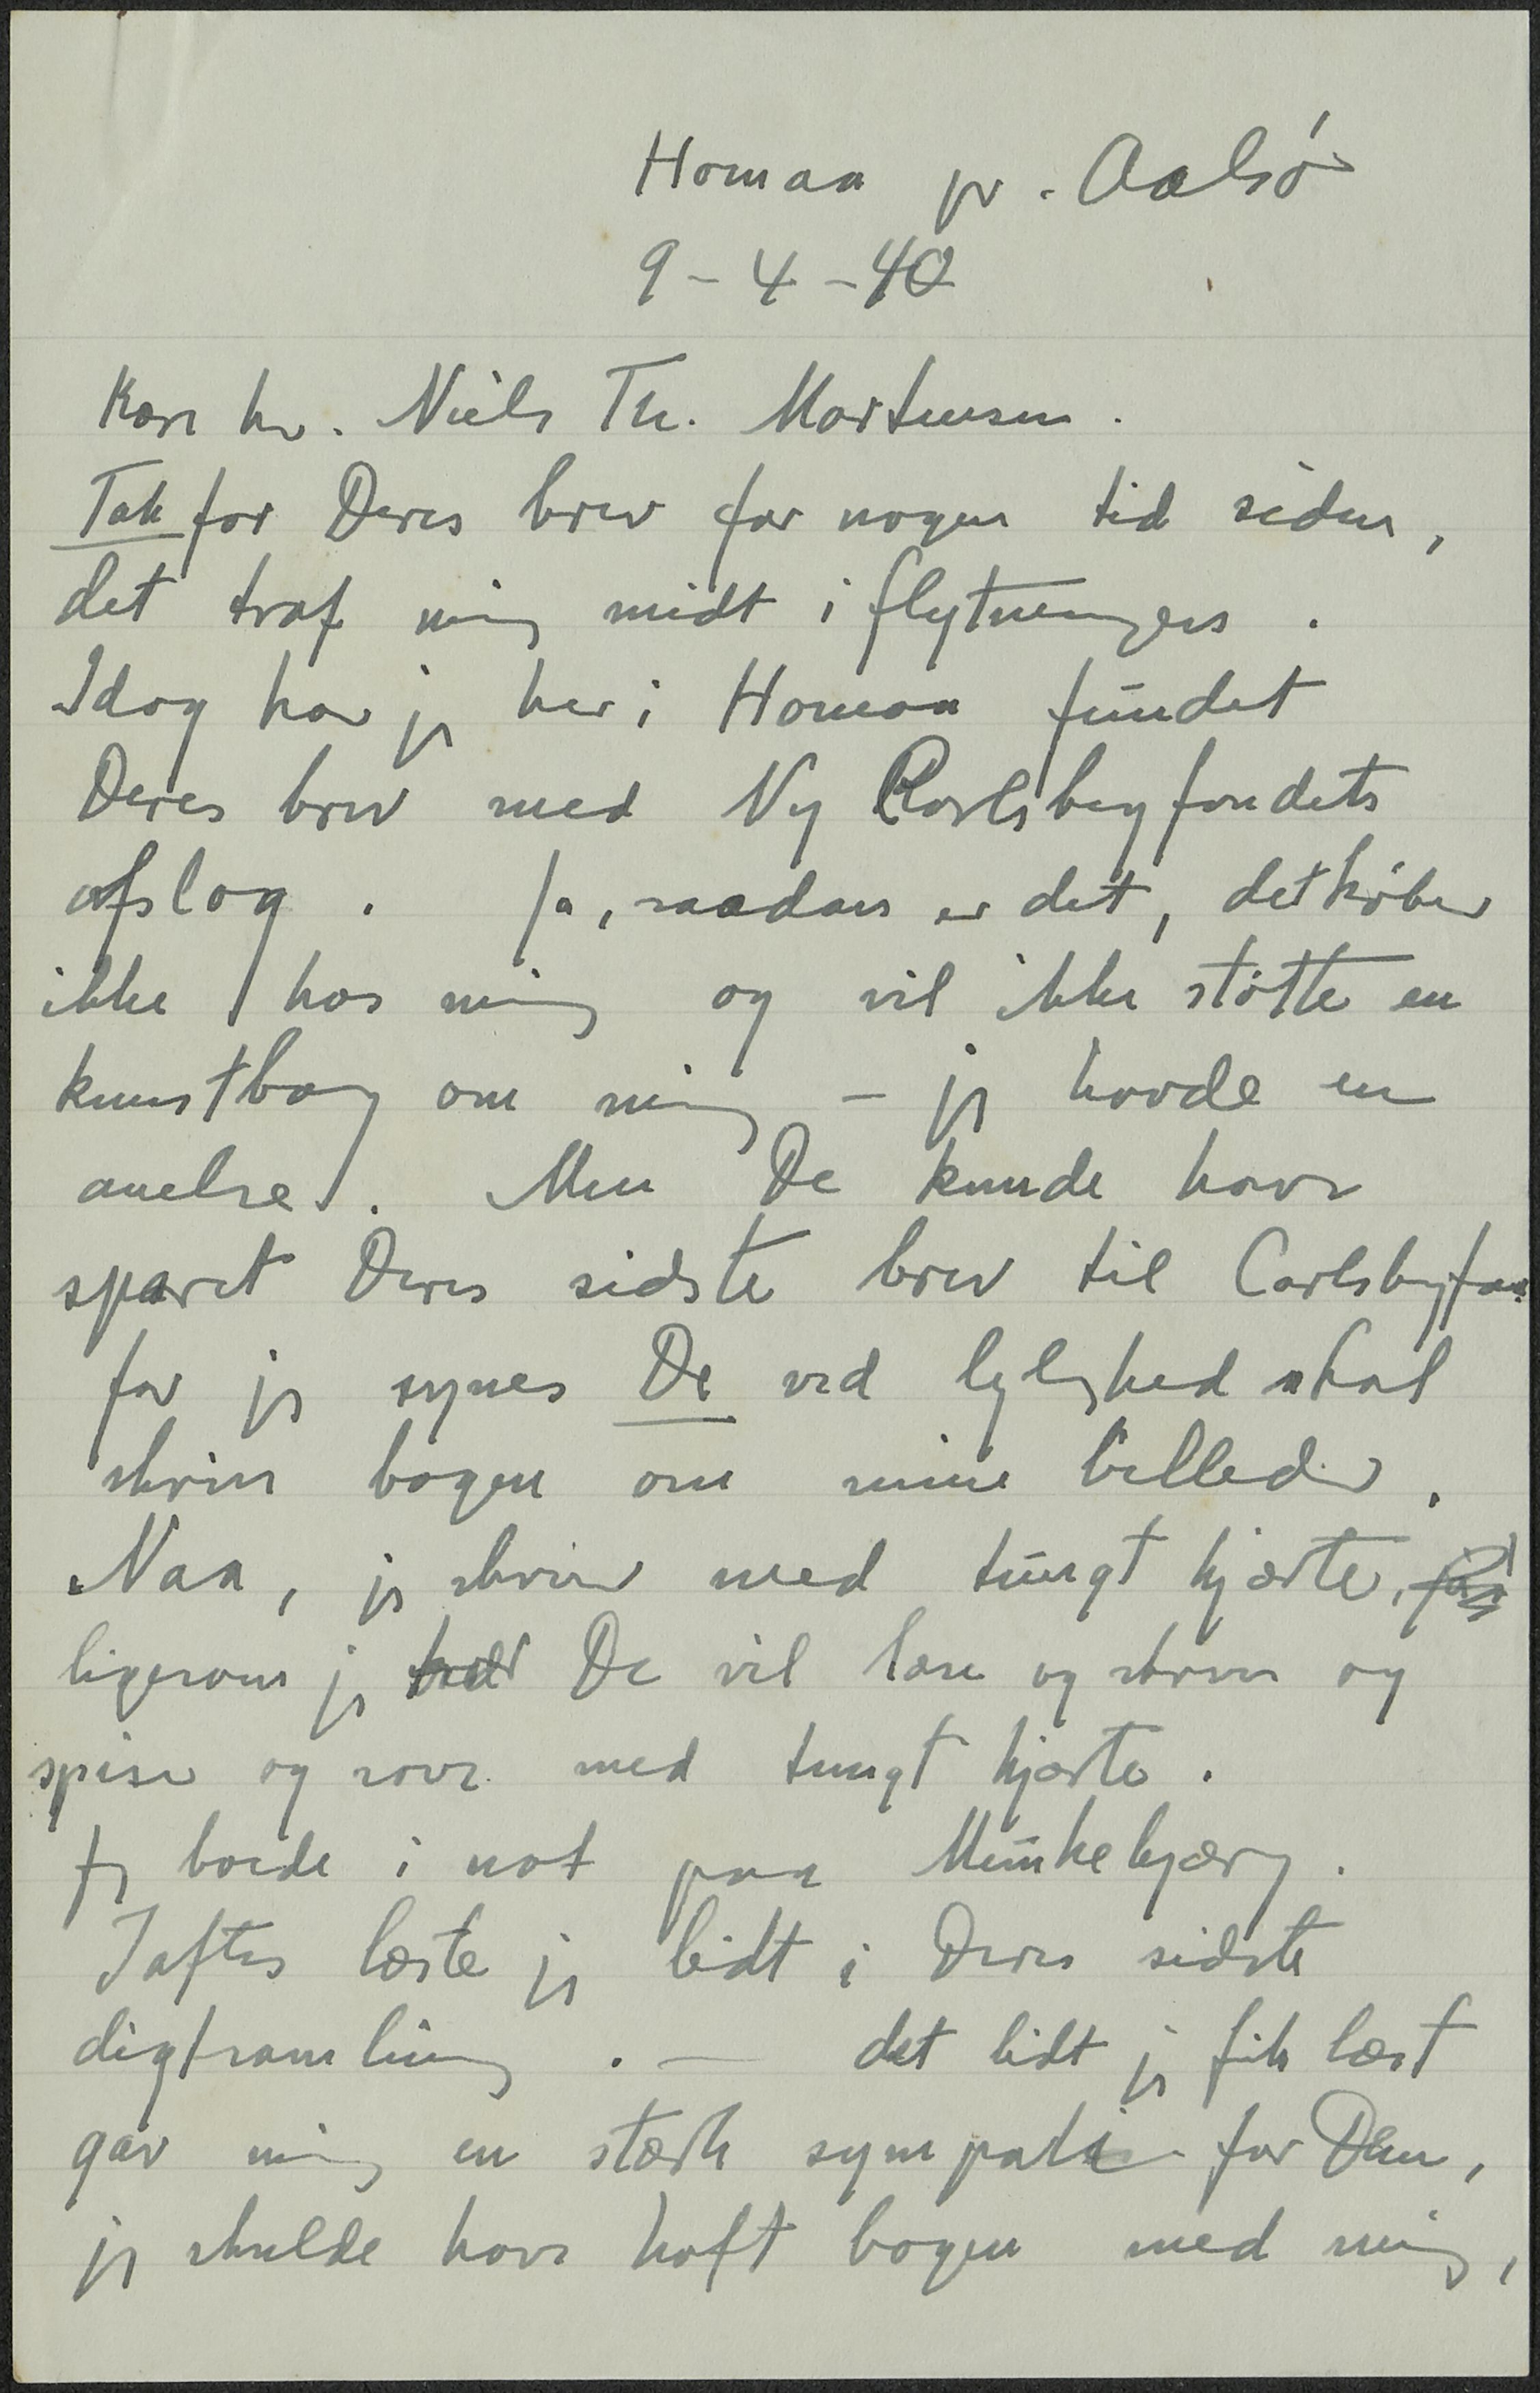 Homaa pr. Aalsø
9-4-40
Kære hr. Niels Th. Mortensen.
Tak for Deres brev for nogen tid siden,
det traf mig midt i flytningen.
Idag har jeg her i Homaa fundet
Deres brev med Ny Carlsbergfondets
afslag. Ja, saadan er det, det køber
ikke hos mig og vil ikke støtte en
kunstbog om mig – jeg havde en
anelse. Men De kunde have
sparet Deres sidste brev til Carlsbergfon.
for jeg synes De ved lejlighed skal
skrive bogen om mine billeder.
Naa, jeg skriver med tungt hjærte,
ligesom jeg De vil læse og skrive og
spise og sove med tungt hjærte.
Jeg boede i nat paa Munkebjærg.
Iaftes læste jeg lidt i Deres sidste
digtsamling. — det lidt jeg fik læst
gav mig en stærk sympati for Dem,
jeg skulde have haft bogen med mig,